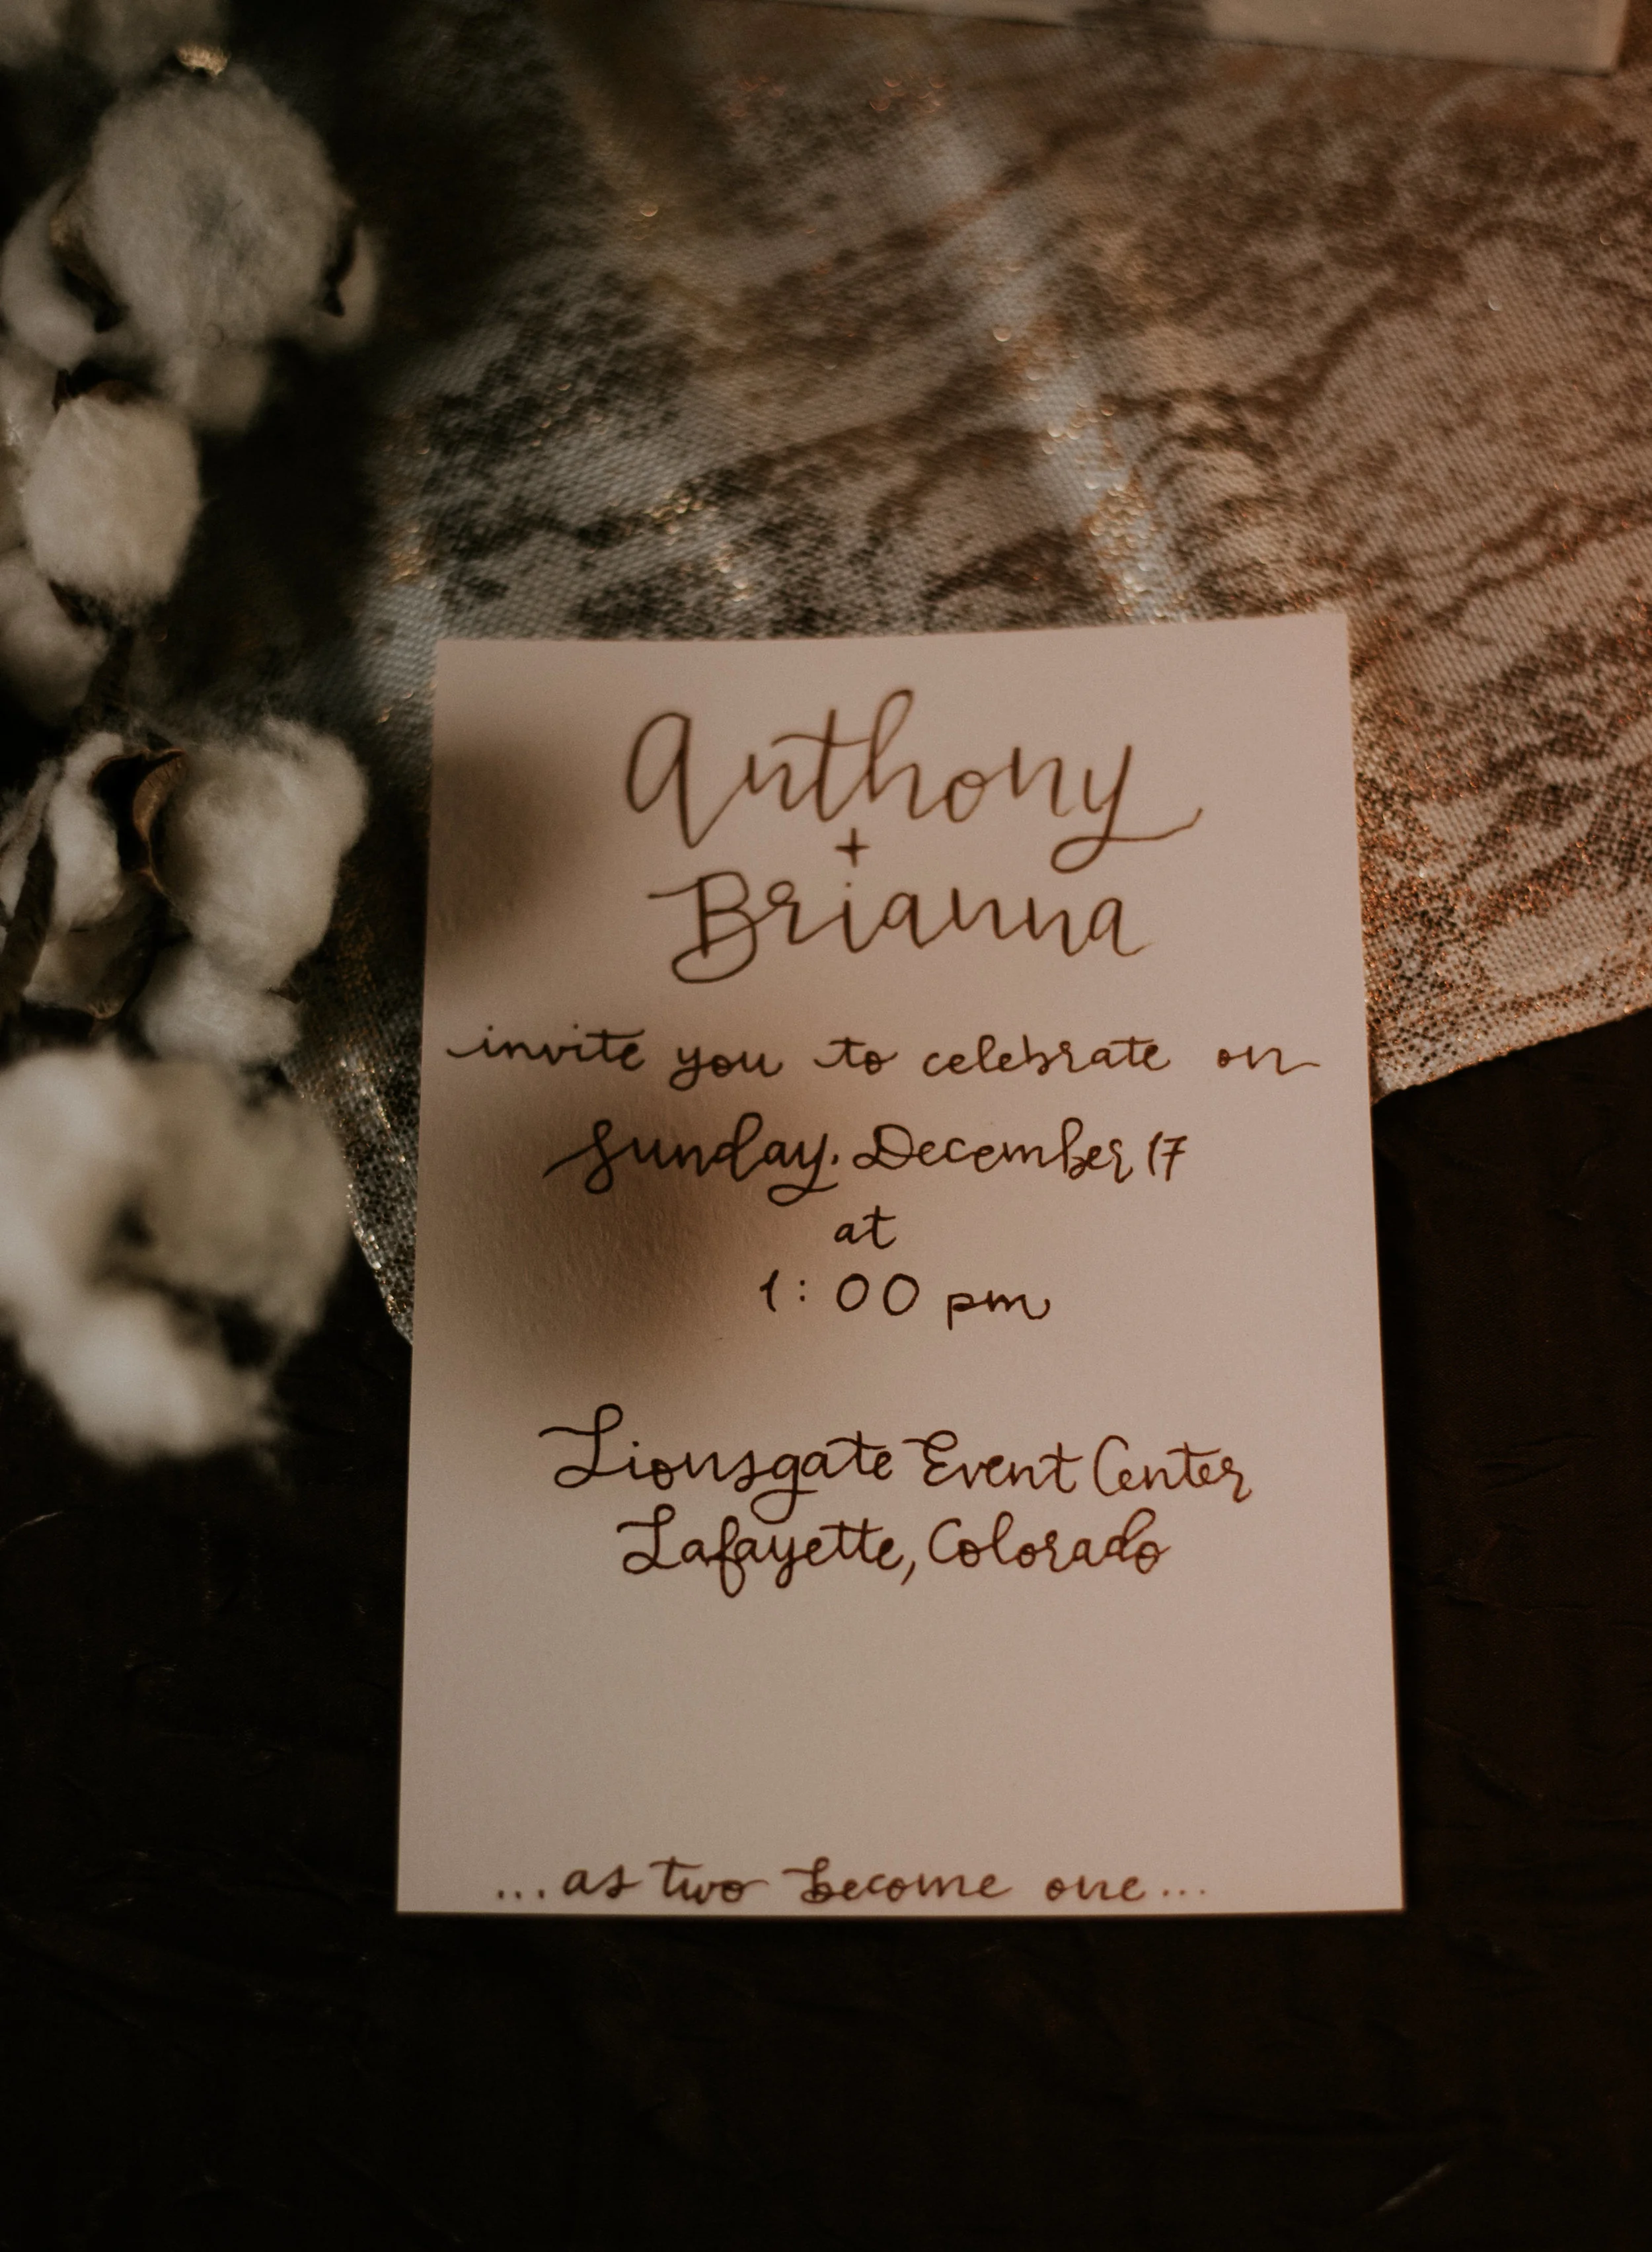 Anthony
+
Brianna
invite you to celebrate on
Sunday, December 17
at
1:00 pm
Lionsgate Event Center
Lafayette, Colorado
...as two become one...